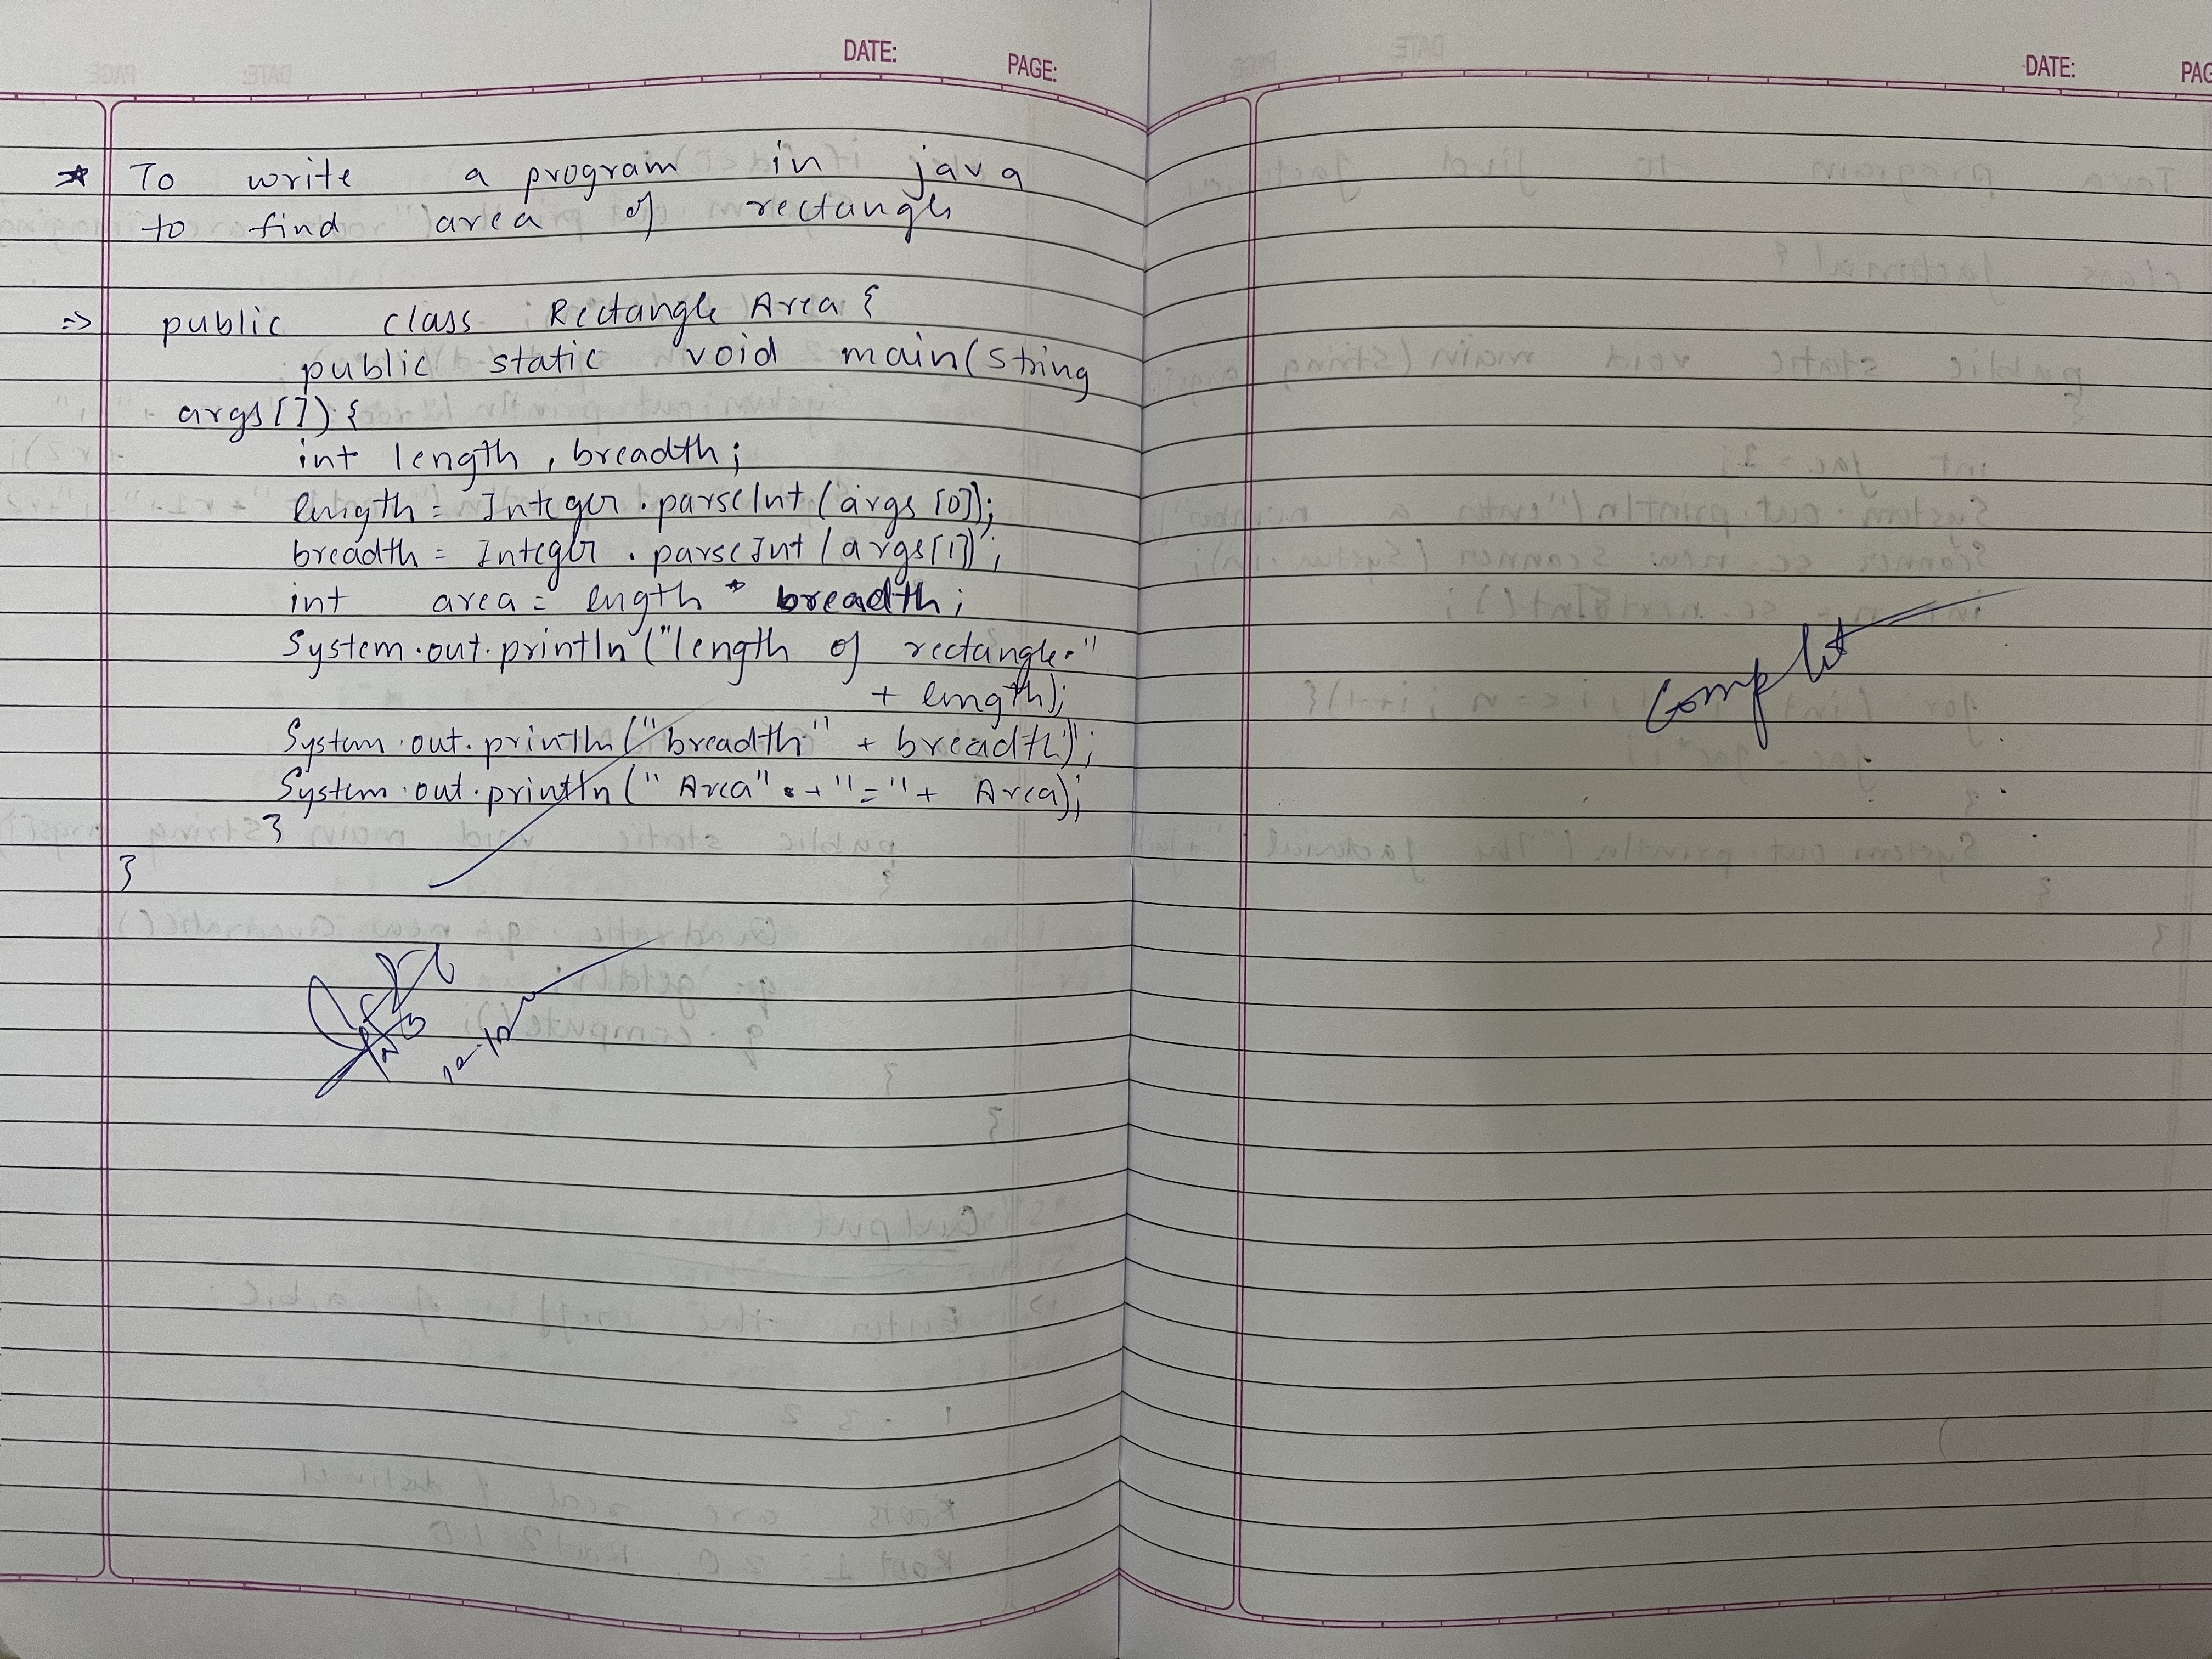 DATE: PAGE:
* To write a program in java
to find area of rectangle
=> public class Rectangle Area {
public static void main(string
args[]) {
int length, breadth;
length = Integer.parseInt(args[0]);
breadth = Integer.parseInt(args[1]);
int area = length * breadth;
System.out.println("length of rectangle."
+ length);
System.out.println("breadth" + breadth);
System.out.println("Area" + "=" + Area);
}
}
DATE: PAG